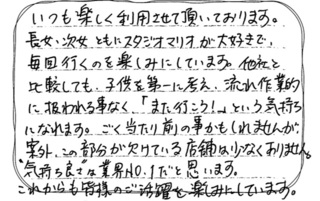 いつも楽しく利用させて頂いております。
長女、次女ともにスタジオマリオが大好きで、
毎回行くのを楽しみにしています。他社と
比較しても、子供を第一に考え、流れ作業的
に扱われる事なく、「また行こう！」という気持ち
になれます。ごく当たり前の事かもしれませんが、
案外、この部分が欠けている店舗は少なくありません。
"気持ち良さ"は業界NO.1だと思います。
これからも皆様のご活躍を楽しみにしています。